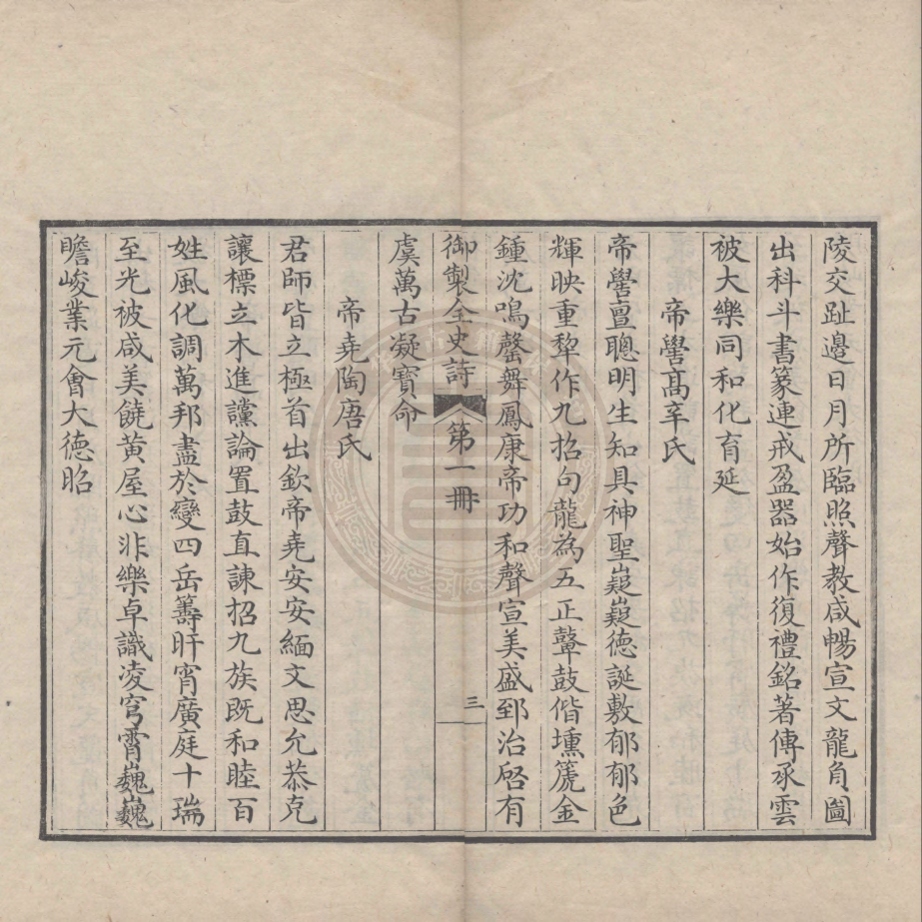 陵交趾邉日月所臨照聲教咸暢宣文龍負圖
出科斗書篆連戒盈器始作復禮銘著傳承雲
被大樂同和化育延
帝嚳高辛氏
帝嚳亶聰明生知具神聖嶷嶷德誕敷郁郁色
輝映重犂作九招句龍為五正鼙鼓偕壎箎金
鍾沈鳴罄舞鳳康帝功和聲宣美盛郅治啓有
御製全史詩 第一冊 三
虞萬古凝寶命
帝堯陶唐氏
君師皆立極首出欽帝堯安安緬文思允恭克
讓標立木進讜論置鼓直諫招九族既和睦百
姓風化調萬邦盡於變四岳籌旰宵廣庭十瑞
至光被咸美饒黄屋心非樂卓識凌穹霄巍巍
瞻峻業元會大德昭